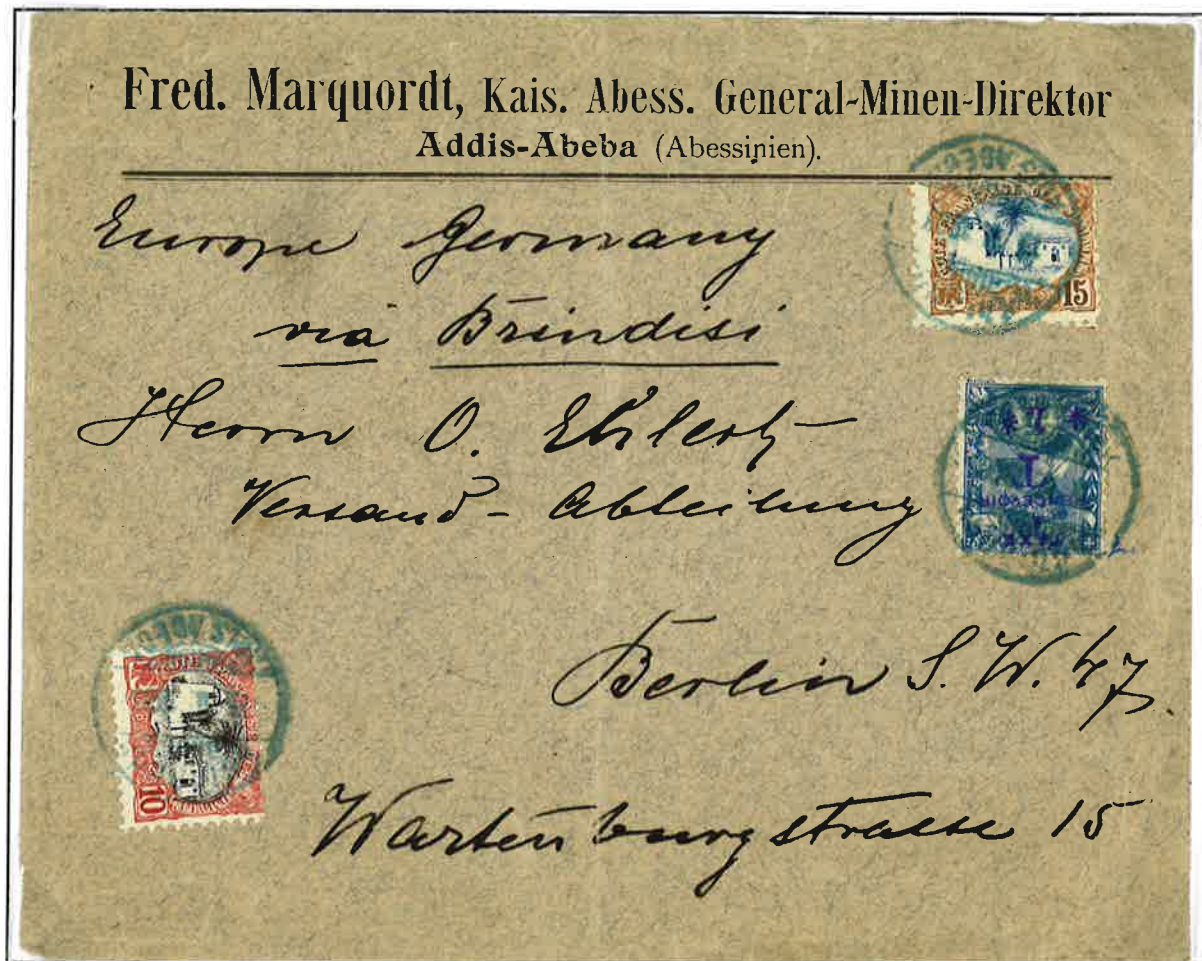 Fred. Marquordt, Kais. Abess. General-Minen-Direktor
Addis-Abeba (Abessinien).
Europe Germany
via Brindisi
Herrn O. Ehlert
Versand-Abteilung
Berlin S.W. 47.
Wartenburgstrasse 15
15
10